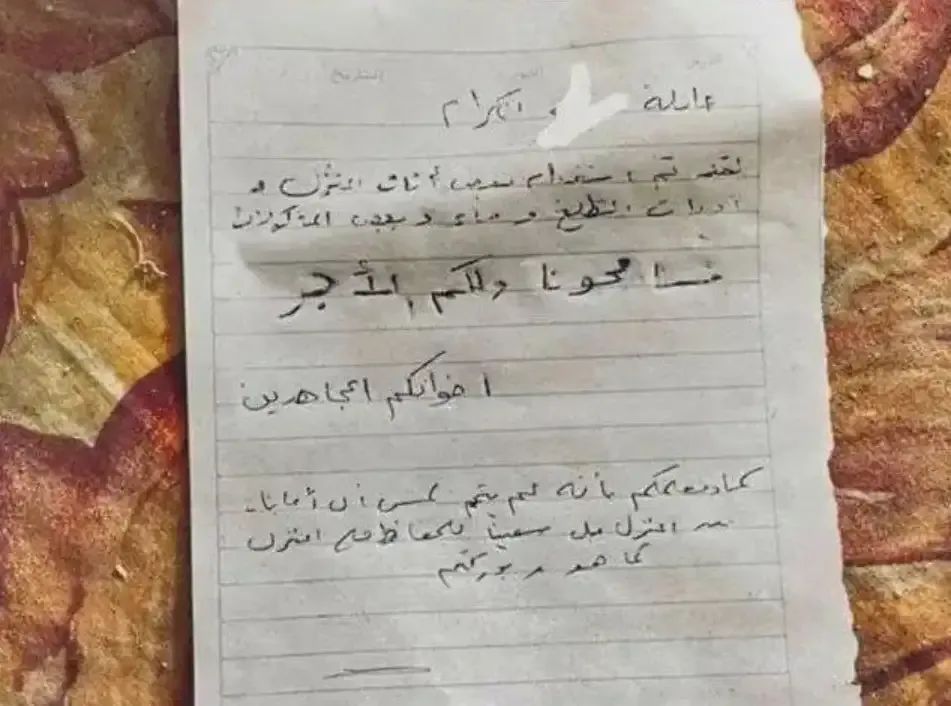 عائلة و الكرام
لقد تم استخدام بعض أثاث المنزل و
أدوات المطبخ و ماء و بعض المأكولات
فسامحونا ولكم الأجر
اخوانكم المجاهدين
بأنه لم يتم لمس أي أمانات
المنزل بل سعينا للحفاظ على المنزل
كما هو و بوركتم